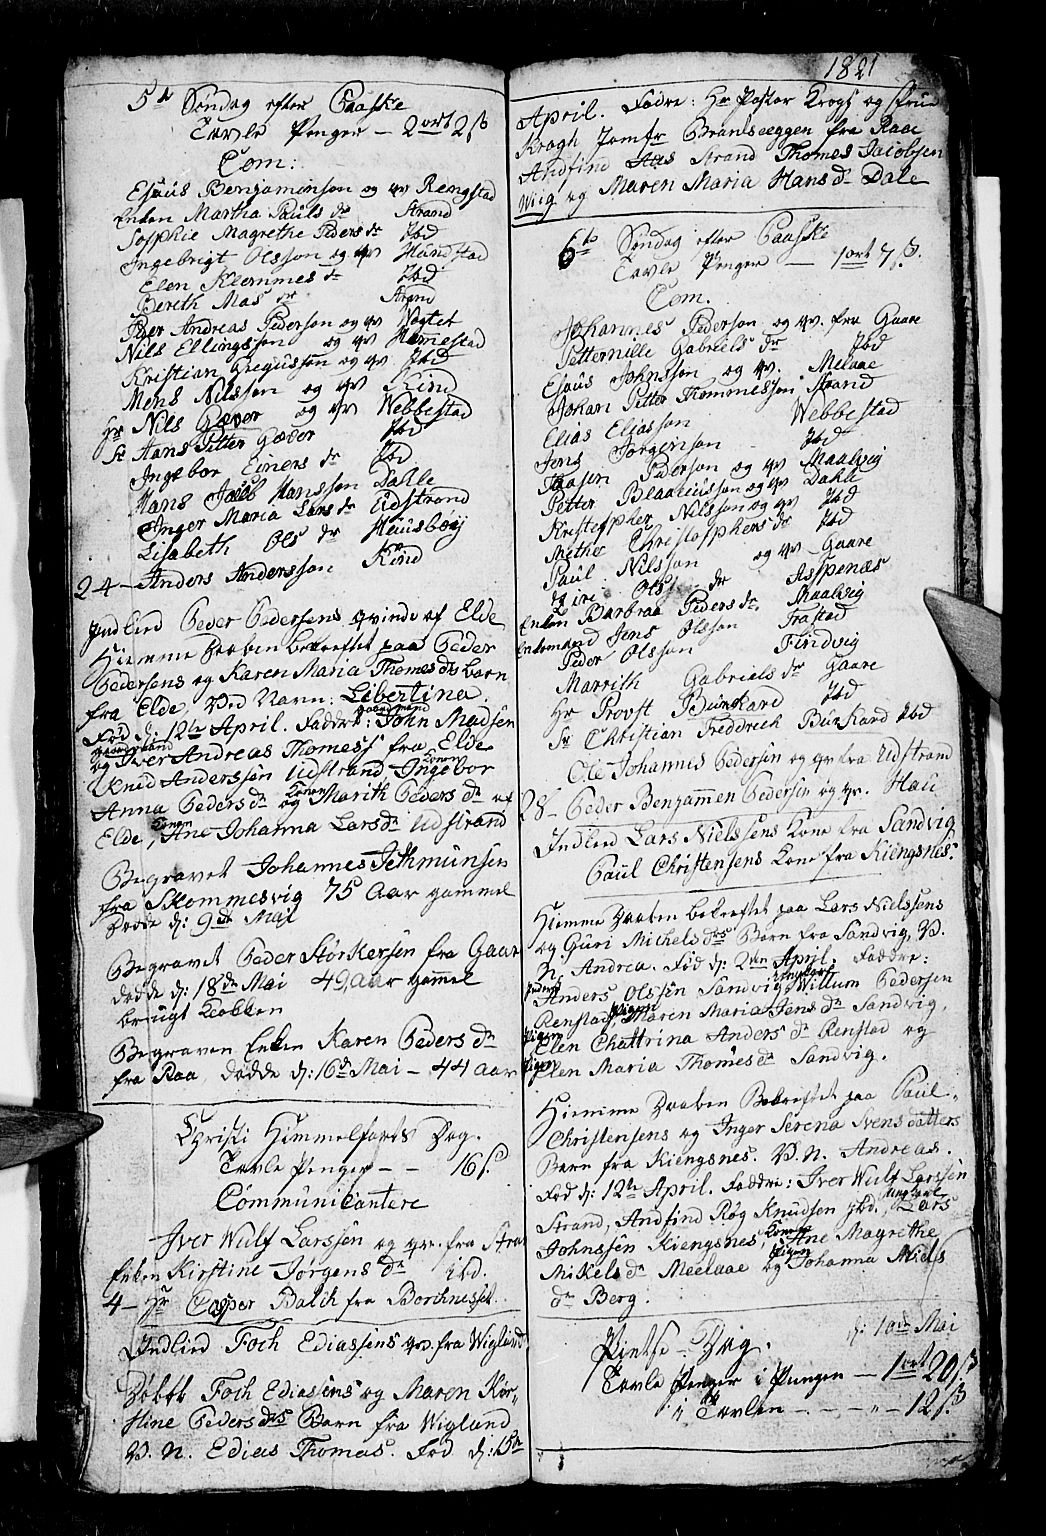 5te Søndag efter Paaske
Tavle Penger — 2 ort 2 s
Com:
Esaus Bengaminson og qv Rengstad
Enken Martha Pauls dr Strand
Sopphie Magrethe Peders dr Ibd
Ingebrigt Olsson og qv Hundstad
Elen Klemmes dr Ibd
Bereth Mas dr Strand
Peer Andreas Pederson og qv Vogter
Nils Ellingsson og qv Hamestad
Kristian Gregusson og qv Ibd
Mons Nilsson og qv Kind
Hr Nils Gæver og qv Webbestad
Sr Hans Petter Gæver Ibd
Ingebor Einers dr Ibd
Hans Jacob Hansson Dahle
Inger Maria Lars dr Udstrand
Lisabeth Ols dr Huusbøy
24 — Anders Andersson Kind
Indlied Peder Pedersens qvinde af Elde
Hiemme Daaben bekreftet paa Peder
Pedersens og Karen Maria Thomes drs barn
fra Elde, Ved Navn: Libertina.
Fød d: 12te April. Faddre: gaardmand John Madsen
og gaardmand Iver Andreas Thomess fra Elde
Knud Anderssen Udstrand, Konen Ingebor
Anna Peders dr og Konen Marith Peders dr af
Elde, Konen Ane Johanna Lars dr Udstrand
Begravet Johannes Jethmunsen
fra Skommesvig 75 Aar gammel
Døde d: 9de Maj
Begravet Peder Størkersen fra Gaar
døde d: 18de Mai 49, Aar gammel
brugt Kobben
Begraven Enken Karen Peders dr
fra Raa, døde d: 16de Mai — 44 Aar
Christi Himmelfarts Dag.
Tavle Penger — — 16 s
Communicantere
Iver Wulf Larssen og qv. fra Stra
Enken Kirstine Jørgens dr ibd.
4 — Hr Casper Balch fra Borchnesset.
Indlied Foch Ediassens qv. fra Wigland
Døbtt Foch Ediassens og Maren Kør-
stine Peders drs Barn fra Wigland
V. N. Edias Thomas. Fød d: 15de
1821
April. Fadre: Hr Pastor Krogs og frue
Krogh Jomfr Brandseeggen fra Raae
Andfind Aas Strand Thomes Jacobsen
Wiig og Maren Maria Hans dr Dale
6te Søndag efter Paaske
Tavle Penger — 1 ort 7 s.
Com.
Johannes Pederson og qv. fra Gaare
Petternille Gabriels dr Ibd
Esaus Johnsson og qv. Melaae
Johan Petter Thommesson Strand
Elias Eliasson Webbestad
Jens Jørgenson Ibd
Pederson og qv Maalvig
Petter Blaaciusson og qv Dahle
Kristopher Nilsson og qv Ibd
Methe Christophers dr Ibd
Paul Nilsson og qv Gaare
Ols dr Asspenæs
Enken Barbraa Peders dr. Maalvig
Enkemand Jens Olsson Trastad
Peder Olsson Findvig
Marrith Gabriels dr Gaare
Hr Provst Bunkard Ibd
Sr Christian Freddrich Bunkard Ibd
Ole Johannes Pedersen og qv fra Udstrand
28 — Peder Benjammen Pedersen og qv. Hau
Indlied Lars Nielssens Kone fra Sandvig
Paul Christensens Kone fra Kiengsnes.
Hiemme Daaben bekreftet paa Lars Nielssens
og Guri Michels drs Barn fra Sandvig, V.
N. Andrea. Fød d: 2den April. Faddre:
Anders Olssen Sandvig, ungkarl Willum Pedersen
Renstad, Pigen Maren Maria Jens dr Sandvig,
Pigen Elen Chattrina Anders dr Renstad og
Pigen Elen Maria Thomes dr Sandvig.
Hiemme Daaben Bekreftet paa Paul
Christensens og Inger Serena Svens datters
Barn fra Kiengsnes. V. n. Andreas.
Fød d: 12te April. Faddre: Iver Wulf Larssen
Strand, Andfind Røg Knudsen ibd. Ungkarl Lars
Johnssen Kiengsnes, Konen Ane Magrethe
Mikels dr Meelaae og Pigen Johanna Niels
dr Berg.
Pintse Dag. d: 10de Mai
Tavle Penger i Pungen — 1 ort 20 s
i Tavlen — - - " — 12 s